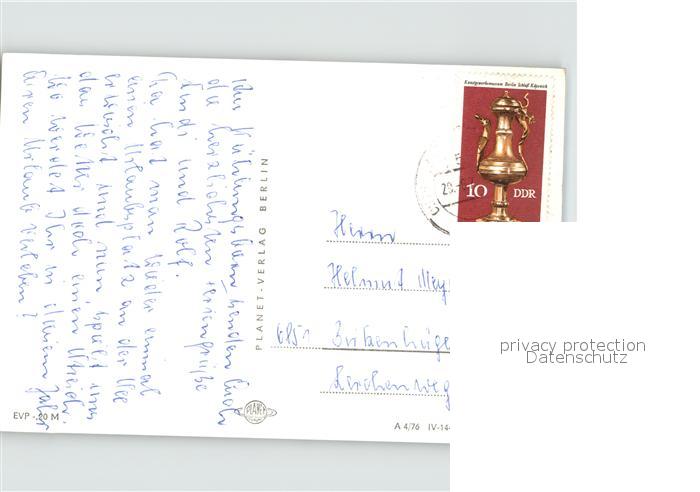 Aus Kühlungsborn senden Euch
die herzlichsten Feriengrüße
und Rolf.
hat man wieder einmal
einen Urlaubsplatz an der See
erwischt und nun spielt uns
das Wetter doch einen Streich.
Wo werdet Ihr in diesem Jahr
Euren Urlaub verleben?
PLANET-VERLAG BERLIN
Kunstgewerbemuseum Berlin Schloß Köpenick
10 DDR
Herrn
Helmut Mey
Lerchenweg
privacy protection
Datenschutz
EVP -,20 M
PLANET
A 4/76 IV-14-